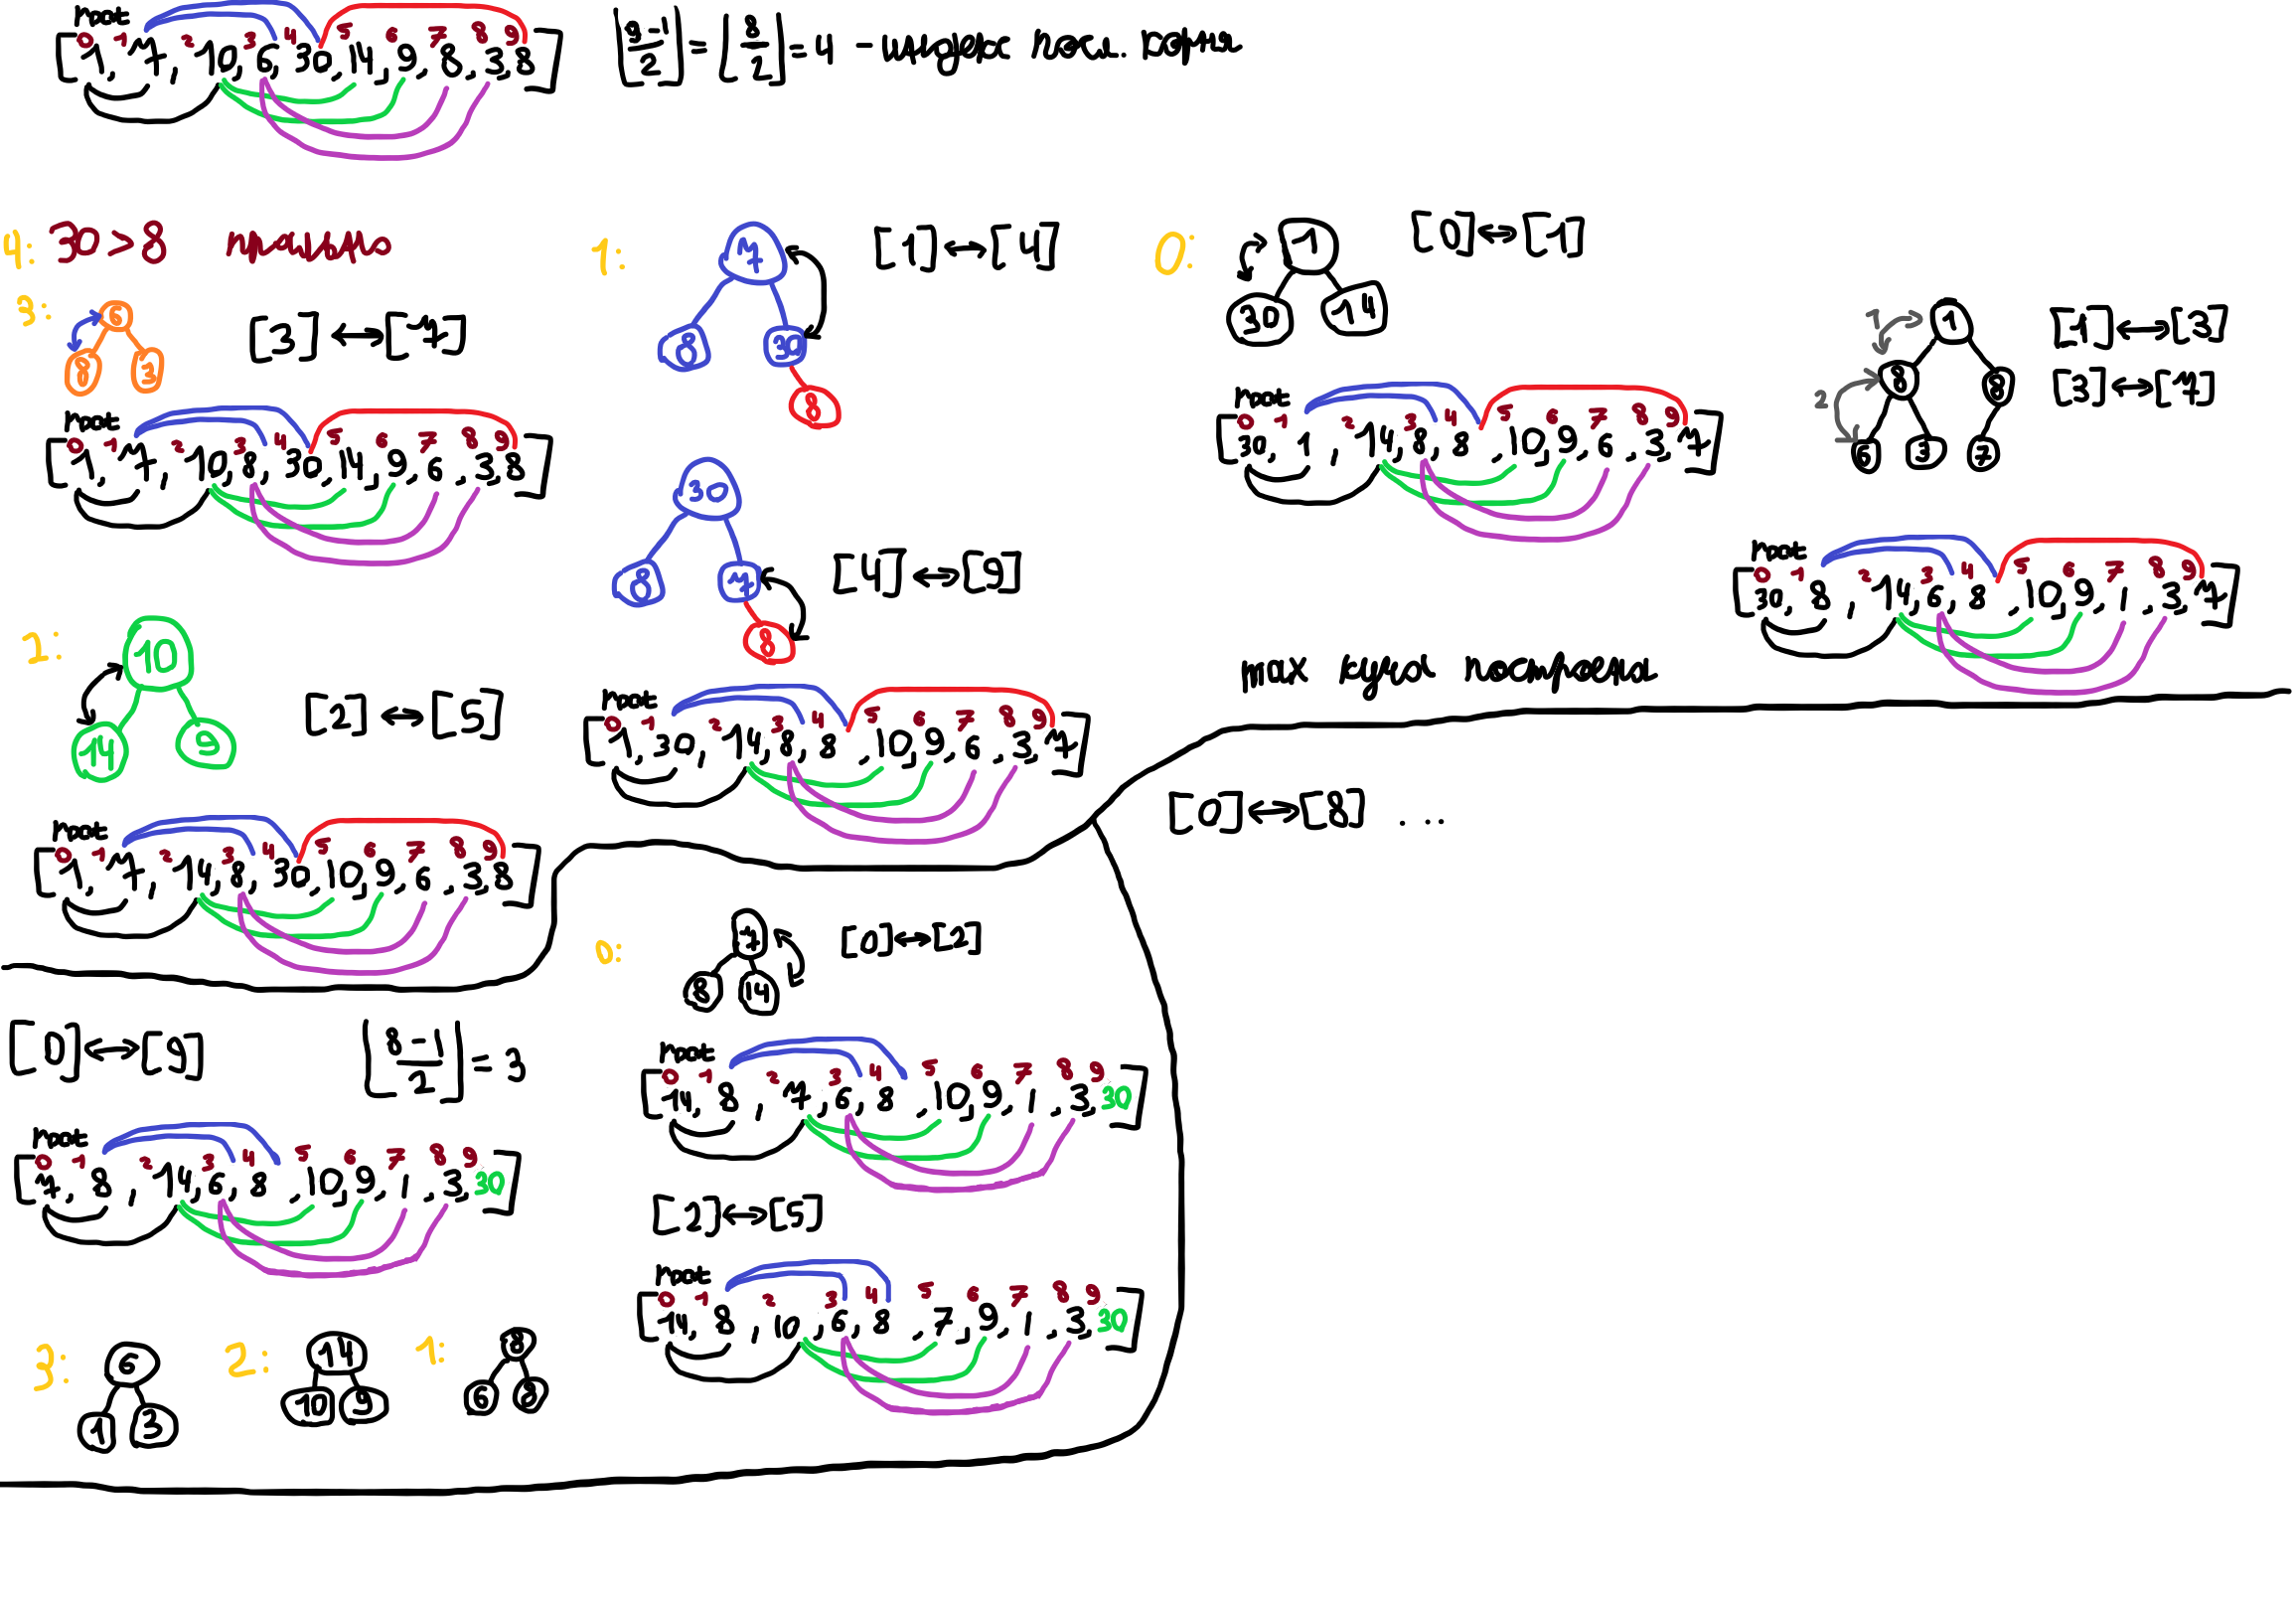 root
0 1 2 3 4 5 6 7 8 9
[1, 7, 10, 6, 30, 14, 9, 8, 3, 8]
⌊(9-1)/2⌋ = ⌊8/2⌋ = 4 - индекс посл. корня
4: 30>8
3: 6 8 3 [3] ↔ [7]
root
0 1 2 3 4 5 6 7 8 9
[1, 7, 10, 8, 30, 14, 9, 6, 3, 8]
2: 10 14 9 [2] ↔ [5]
root
0 1 2 3 4 5 6 7 8 9
[1, 7, 14, 8, 30, 10, 9, 6, 3, 8]
1: 7 8 30 8 [1] ↔ [4]
30 8 7 8 [4] ↔ [9]
root
0 1 2 3 4 5 6 7 8 9
[1, 30, 14, 8, 8, 10, 9, 6, 3, 7]
0: 1 30 14 [0] ↔ [1]
root
0 1 2 3 4 5 6 7 8 9
[30, 1, 14, 8, 8, 10, 9, 6, 3, 7]
1 2 1 8 8 6 3 7
[1] ↔ [3]
[3] ↔ [7]
root
0 1 2 3 4 5 6 7 8 9
[30, 8, 14, 6, 8, 10, 9, 1, 3, 7]
max куча построена
[0] ↔ [9] ⌊(8-1)/2⌋ = 3
root
0 1 2 3 4 5 6 7 8 9
[7, 8, 14, 6, 8, 10, 9, 1, 3, 30]
3: 6 1 3
2: 14 10 9
1: 8 6 8
0: 7 8 14 [0] ↔ [2]
root
0 1 2 3 4 5 6 7 8 9
[14, 8, 7, 6, 8, 10, 9, 1, 3, 30]
[2] ↔ [5]
root
0 1 2 3 4 5 6 7 8 9
[14, 8, 10, 6, 8, 7, 9, 1, 3, 30]
[0] ↔ [8] ...